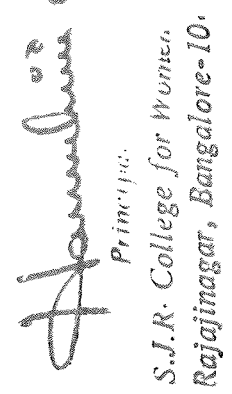 Principal
S.J.R. College for Women
Rajajinagar, Bangalore-10.